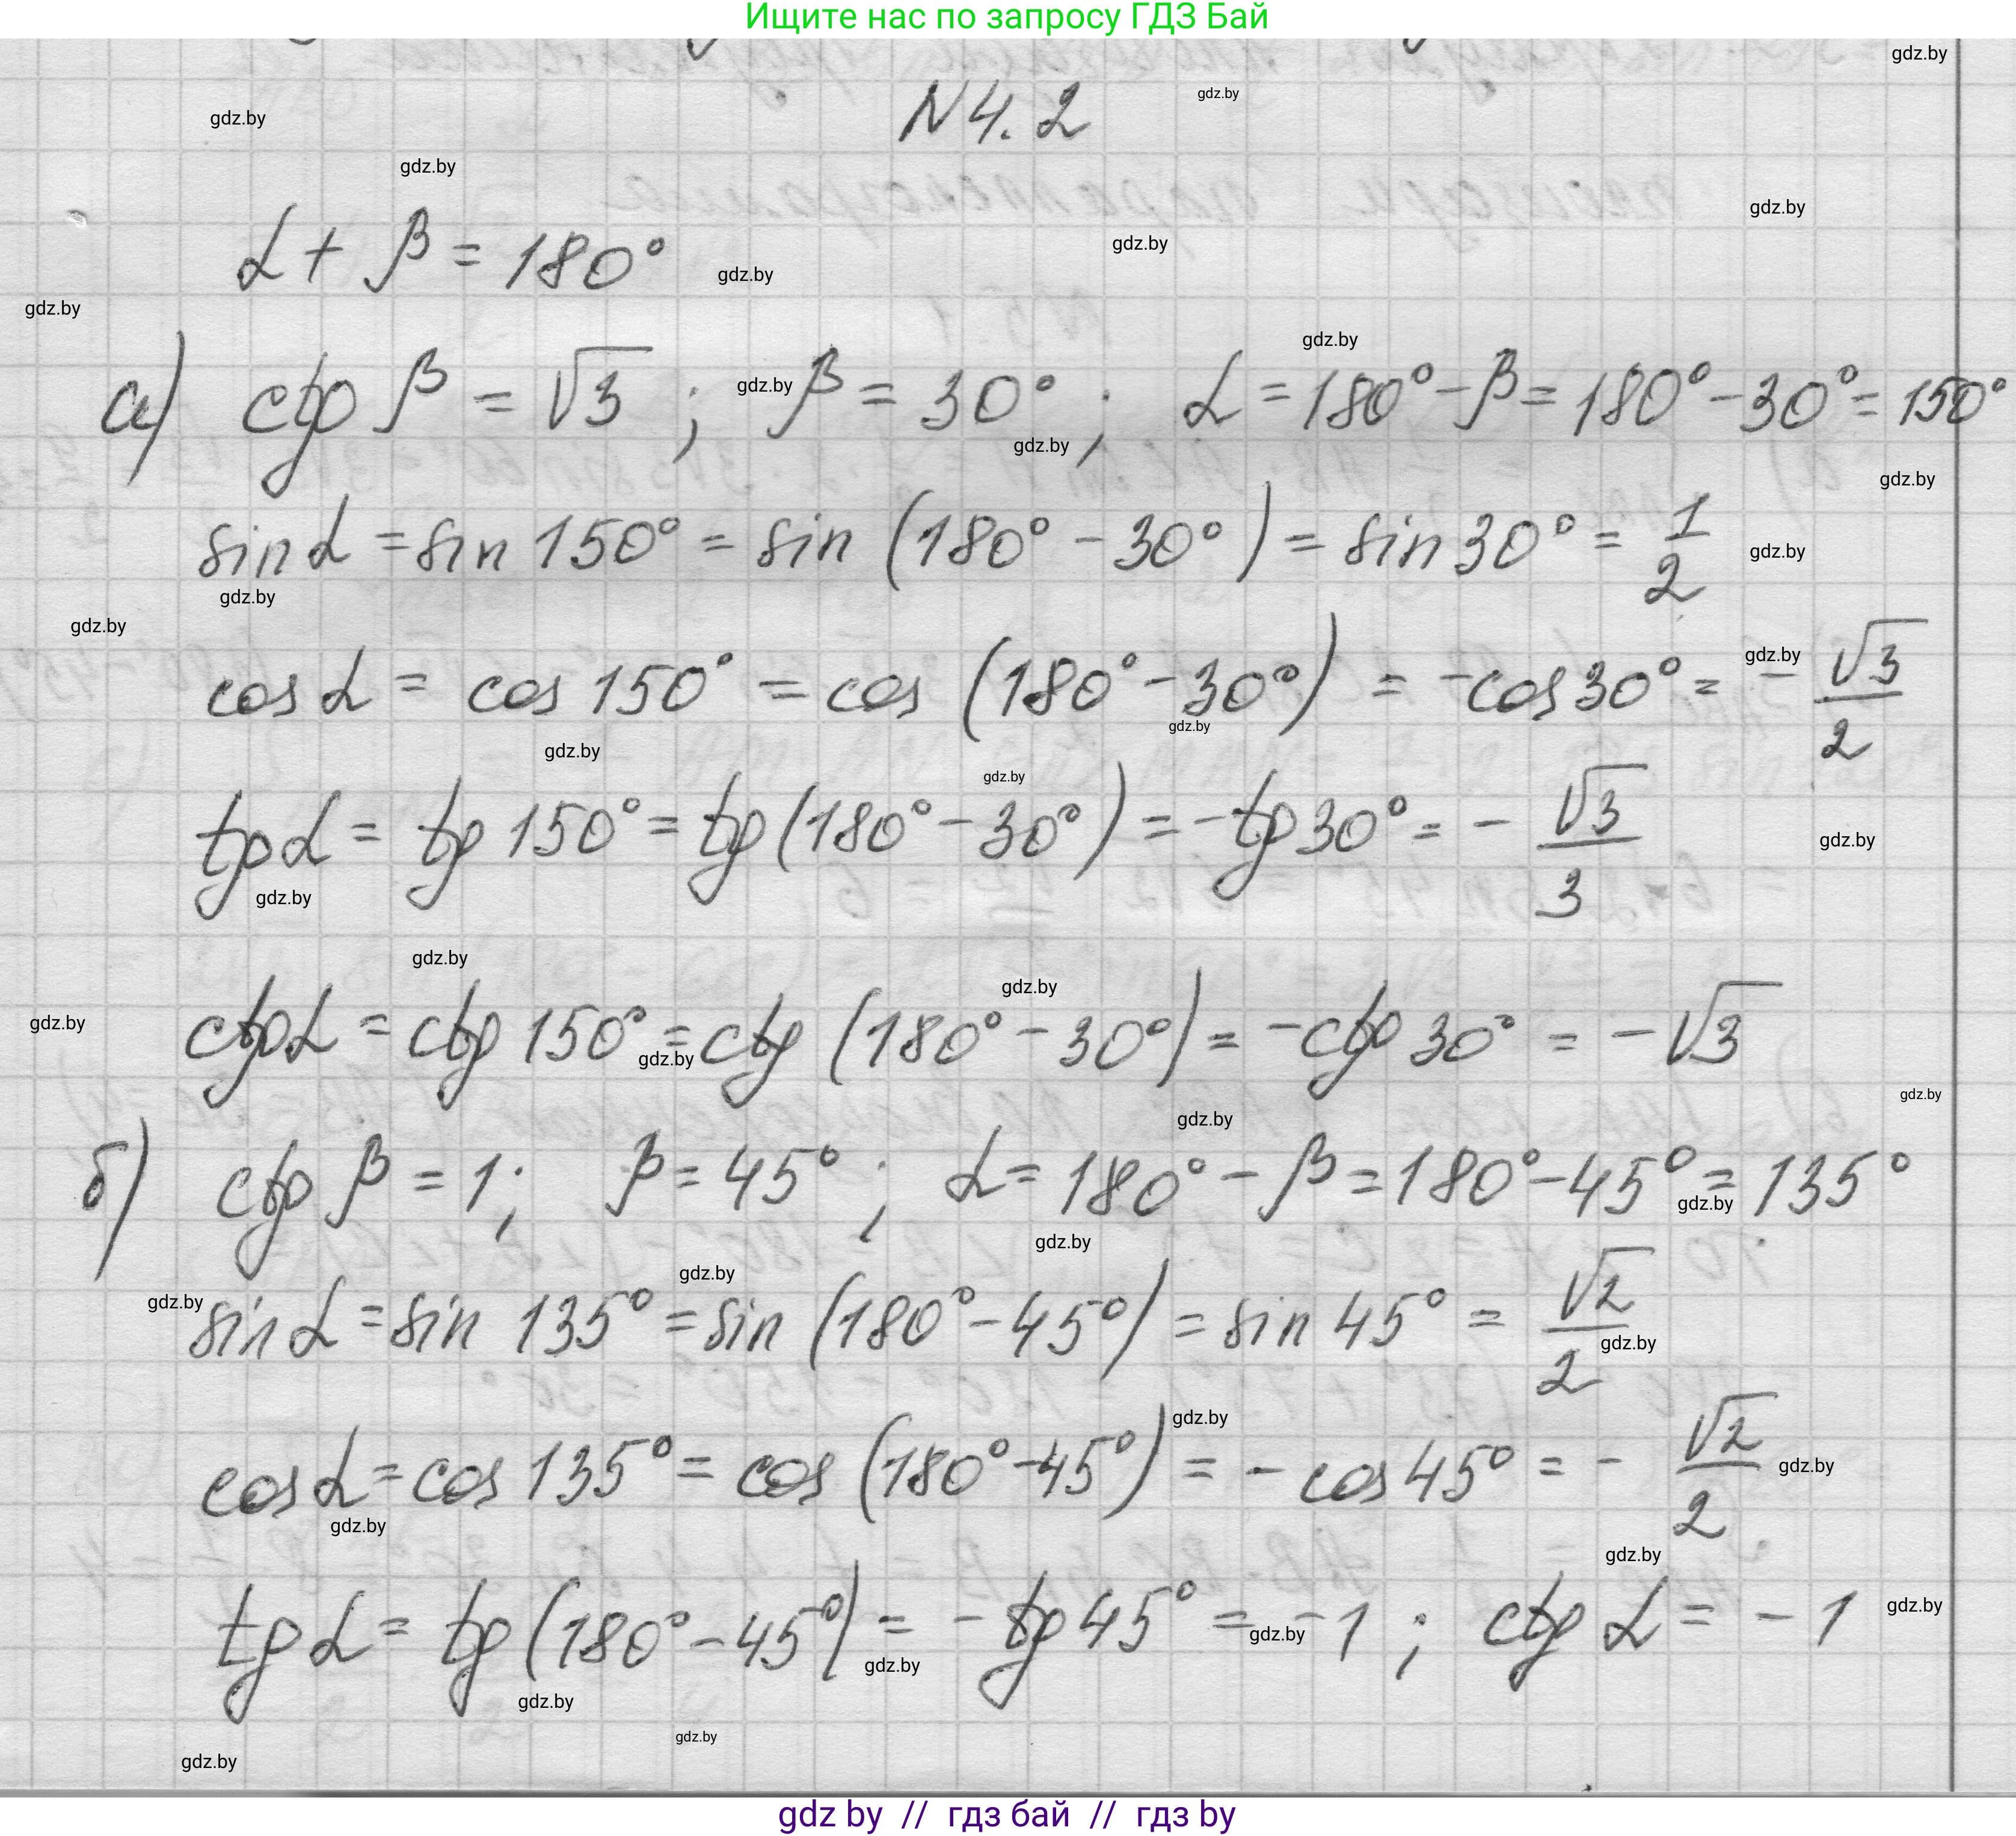 Ищите нас по запросу ГДЗ Бай
N4.2
α + β = 180°
а) ctg β = √3 ; β = 30° ; α = 180° - β = 180° - 30° = 150°
sin α = sin 150° = sin (180° - 30°) = sin 30° = 1/2
cos α = cos 150° = cos (180° - 30°) = -cos 30° = - √3/2
tg α = tg 150° = tg (180° - 30°) = -tg 30° = - √3/3
ctg α = ctg 150° = ctg (180° - 30°) = -ctg 30° = - √3
б) ctg β = 1; β = 45° ; α = 180° - β = 180° - 45° = 135°
sin α = sin 135° = sin (180° - 45°) = sin 45° = √2/2
cos α = cos 135° = cos (180° - 45°) = - cos 45° = - √2/2
tg α = tg (180° - 45°) = - tg 45° = -1 ; ctg α = - 1
gdz by // гдз бай // гдз by